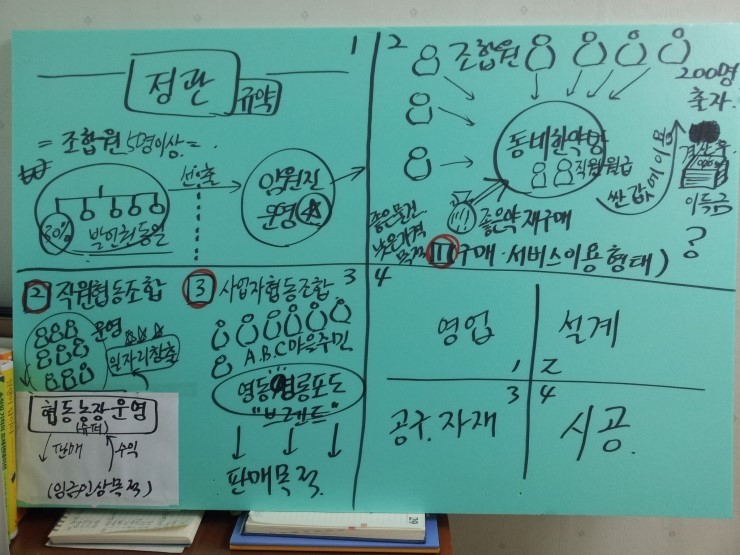 1
정관
규약
= 조합원 5명이상 =
선출
30%
발인회동일
임원진
운영
2
조합원
200명
출자
동비한약방
직원월급
싼값에 이용
이득금
?
좋은물건
낮은가격
목적
좋은약재구매
1 구매·서비스이용형태)
2 직원협동조합
운영
일자리창출
협동농장운영
↓판매 ↑수익
(임금인상목적)
3
3 사업자협동조합
A.B.C마을주민
"브랜드"
판매목적
4
영업
1
설계
2
3
공구.자재
4
시공.
29